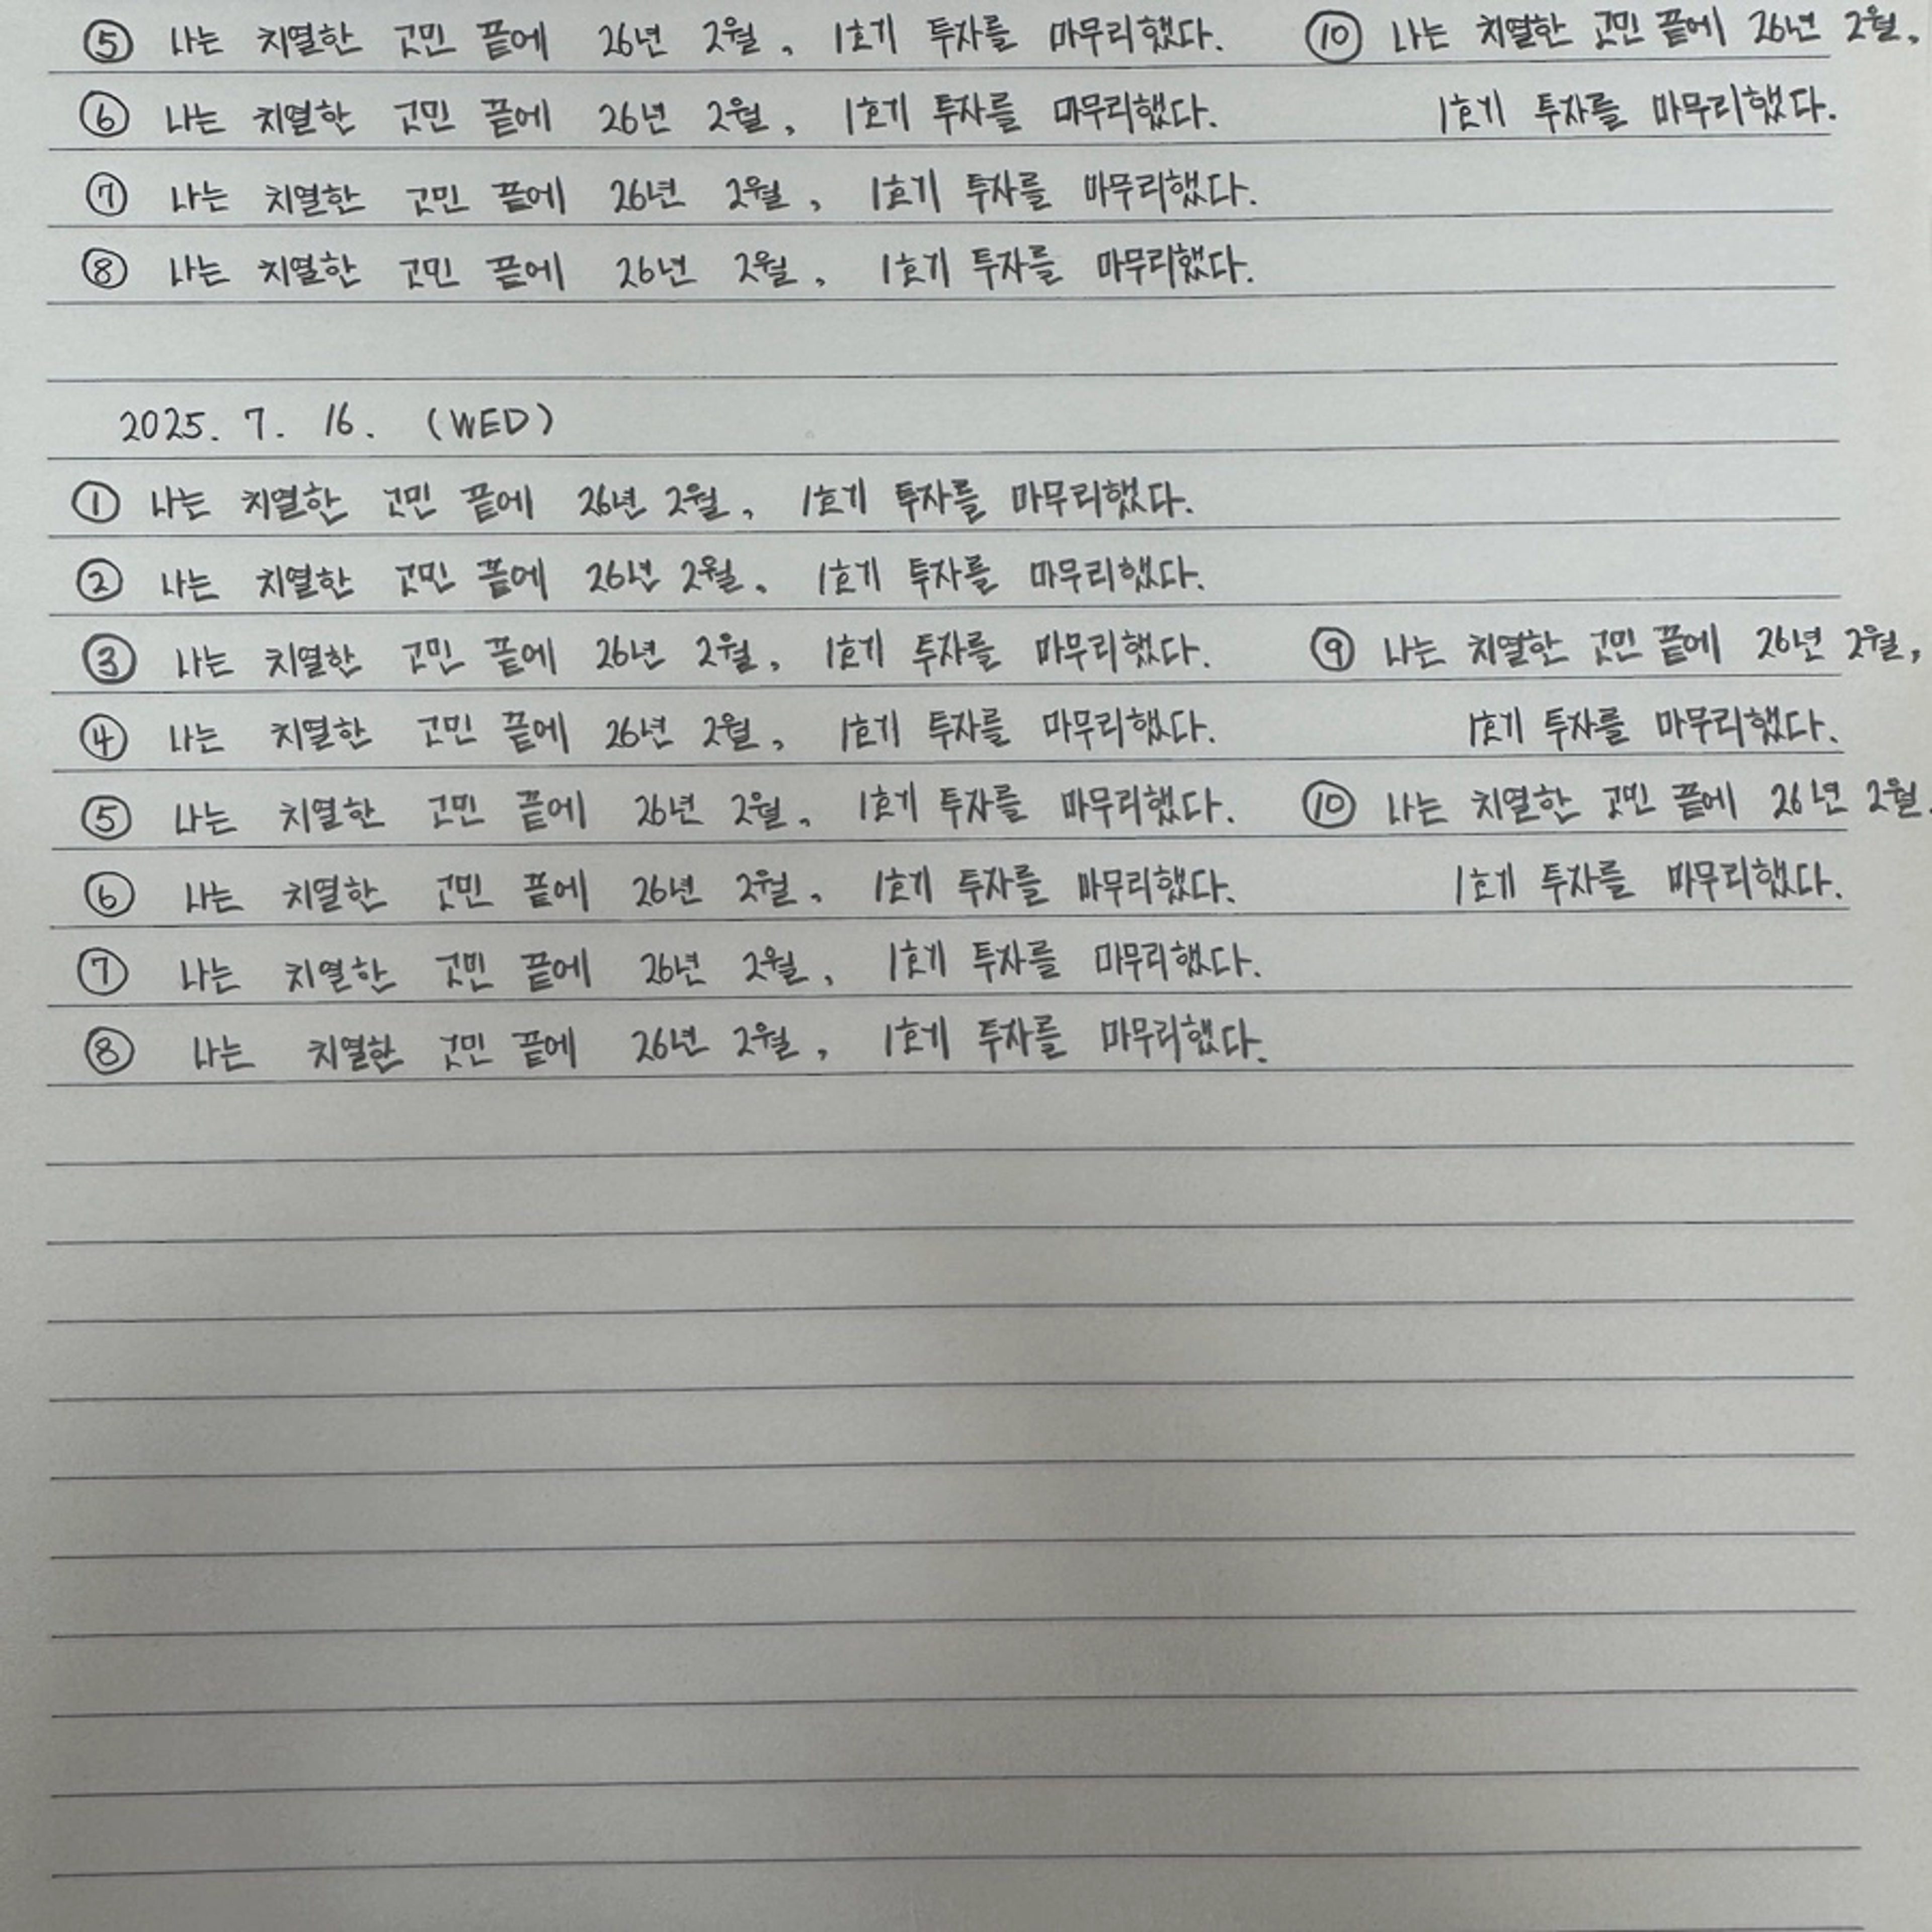 ⑤ 나는 치열한 고민 끝에 26년 2월, 1호기 투자를 마무리했다.
⑥ 나는 치열한 고민 끝에 26년 2월, 1호기 투자를 마무리했다.
⑦ 나는 치열한 고민 끝에 26년 2월, 1호기 투자를 마무리했다.
⑧ 나는 치열한 고민 끝에 26년 2월, 1호기 투자를 마무리했다.
⑩ 나는 치열한 고민 끝에 26년 2월,
1호기 투자를 마무리했다.
2025. 7. 16. (WED)
① 나는 치열한 고민 끝에 26년 2월, 1호기 투자를 마무리했다.
② 나는 치열한 고민 끝에 26년 2월, 1호기 투자를 마무리했다.
③ 나는 치열한 고민 끝에 26년 2월, 1호기 투자를 마무리했다.
④ 나는 치열한 고민 끝에 26년 2월, 1호기 투자를 마무리했다.
⑤ 나는 치열한 고민 끝에 26년 2월, 1호기 투자를 마무리했다.
⑥ 나는 치열한 고민 끝에 26년 2월, 1호기 투자를 마무리했다.
⑦ 나는 치열한 고민 끝에 26년 2월, 1호기 투자를 마무리했다.
⑧ 나는 치열한 고민 끝에 26년 2월, 1호기 투자를 마무리했다.
⑨ 나는 치열한 고민 끝에 26년 2월,
1호기 투자를 마무리했다.
⑩ 나는 치열한 고민 끝에 26년 2월,
1호기 투자를 마무리했다.